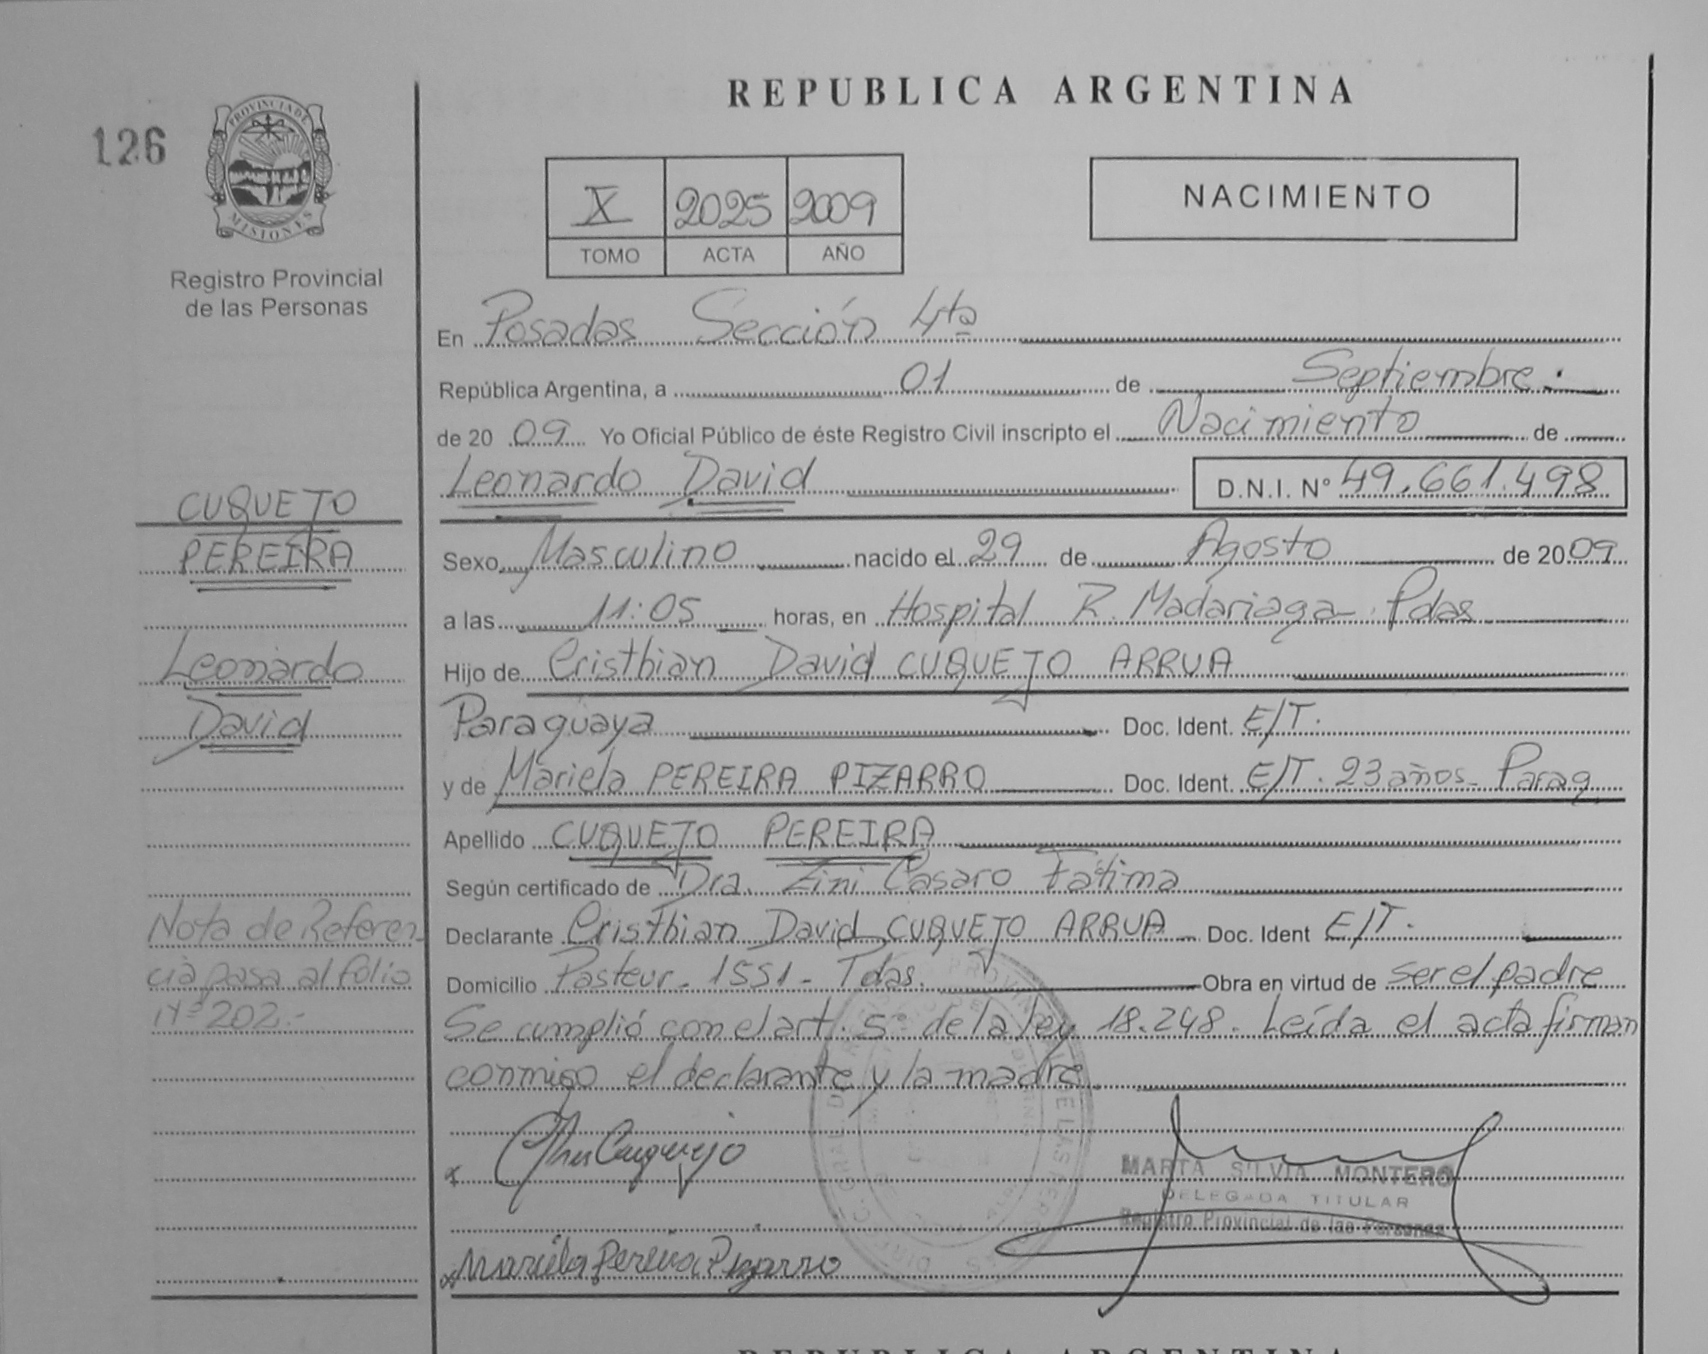 REPUBLICA ARGENTINA
126
PROVINCIA DE
MISIONES
Registro Provincial
de las Personas
X 2025 2009
TOMO ACTA AÑO
NACIMIENTO
En Posadas Sección 4ta
República Argentina, a 01 de Septiembre
de 20 09 Yo Oficial Público de éste Registro Civil inscripto el Nacimiento de
Leonardo David D.N.I. N° 49.661.498
CUQUEJO
PEREIRA
Leonardo
David
Sexo Masculino nacido el 29 de Agosto de 2009
a las 11:05 horas, en Hospital R. Madariaga - Pdas
Hijo de Cristhian David CUQUEJO ARRUA
Paraguaya Doc. Ident. E/T.
y de Mariela PEREIRA PIZARRO Doc. Ident. E/T. 23 años - Parag
Apellido CUQUEJO PEREIRA
Según certificado de Dra. Zini Casaro Fatima
Declarante Cristhian David CUQUEJO ARRUA Doc. Ident E/T.
Domicilio Pasteur - 1551 - Pdas. Obra en virtud de ser el padre
Se cumplió con el art. 5° de la ley 18.248. Leída el acta firman
conmigo el declarante y la madre
Nota de Referen
cia pasa al folio
Nº 202.-
x Cuquejo
MARTA SILVIA MONTERO
DELEGADA TITULAR
Registro Provincial de las Personas
x Mariela Pereira Pizarro
REPUBLICA ARGENTINA